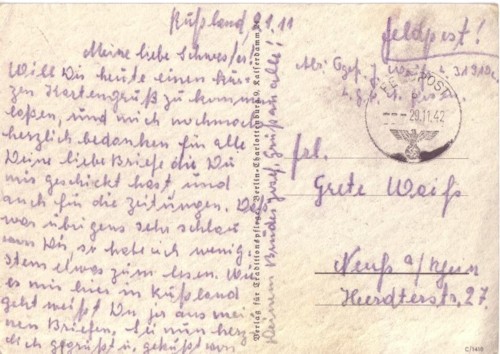 Rußland, 21.11
Meine liebe Schwester!
Will Dir heute einen kur-
zen Kartengruß zukommen
laßen, und mich nochmals
herzlich bedanken für alle
Deine liebe Briefe die Du
mir geschickt hast, und
auch für die Zeitungen. Das
war übrigens sehr schlau
von Dir, so habe ich wenig-
stens etwas zum lesen. Wie
es mir hier in Rußland
geht weißt Du ja aus mei-
nen Briefen. Sei nun herz-
lich gegrüßt u. geküßt von
Deinem Bruder Josef. Gruß an alle!
Verlag für Traditionspflege, Berlin-Charlottenburg 9, Kaiserdamm
Feldpost!
Abs. Ogef. J. Weiß
FELDPOST
29.11.42
Frl.
Grete Weiß
Neuß a/Rhein
Herdterstr. 27.